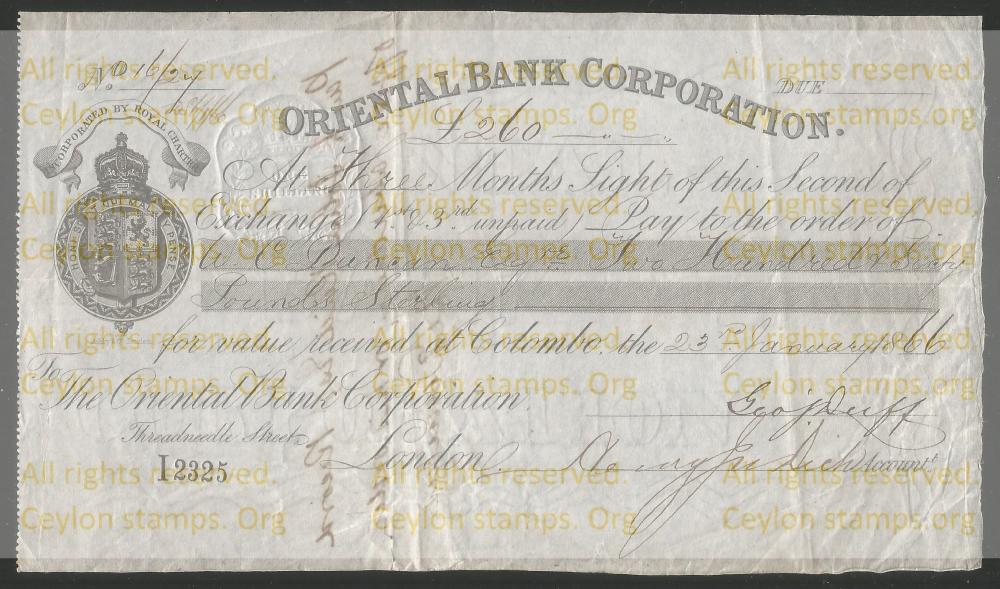 No. 16/27
ORIENTAL BANK CORPORATION.
DUE
INCORPORATED BY ROYAL CHARTER
£260
At Three Months Sight of this Second of
Exchange (1st & 3rd unpaid) Pay to the order of
Duncan Esqre Two Hundred & Sixty
Pounds Sterling
HONI SOIT QUI MAL Y PENSE
for value received at Colombo. the 23rd January 1866
To
The Oriental Bank Corporation.
Geo J Duff
Threadneedle Street
London.
Accountt.
I2325
All rights reserved.
Ceylon stamps. Org
All rights reserved.
Ceylon stamps. Org
All rights reserved.
Ceylon stamps. Org
All rights reserved.
Ceylon stamps. Org
All rights reserved.
Ceylon stamps. Org
All rights reserved.
Ceylon stamps. Org
All rights reserved.
Ceylon stamps. Org
All rights reserved.
Ceylon stamps. Org
All rights reserved.
Ceylon stamps. Org
All rights reserved.
Ceylon stamps. Org
All rights reserved.
Ceylon stamps. Org
All rights reserved.
Ceylon stamps. Org